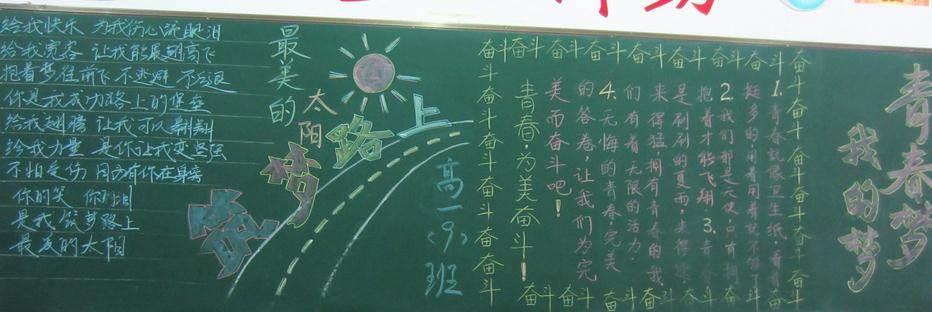 给我快乐 为我伤心流眼泪
给我宽容 让我能展翅高飞
抱着梦往前飞 不逃避 不后退
你是我成功路上的堡垒
给我翅膀 让我可以翱翔
给我力量 是你让我变坚强
不怕受伤 因为有你在身旁
你的笑 你的泪
是我筑梦路上
最美的太阳
最美的
太阳
筑梦路上
高一〈9〉班
奋斗奋斗奋斗奋斗奋斗奋斗奋斗奋斗
奋斗奋斗奋斗奋斗奋斗奋斗奋斗
1.青春就像卫生纸,看着
挺多的,用着用着就
2.我们都是天使,只有拥
抱着才能飞翔 3.青
是刷刷的夏雨,
来得猛,拥有青春的我
们有着无限的活力.
4.无悔的青春,完美
的答卷,让我们为完
美而奋斗吧!
青春,为美奋斗!
奋斗奋斗奋斗奋斗奋斗奋斗
奋斗奋斗 奋斗奋斗奋斗奋斗奋斗
青春梦
我的梦